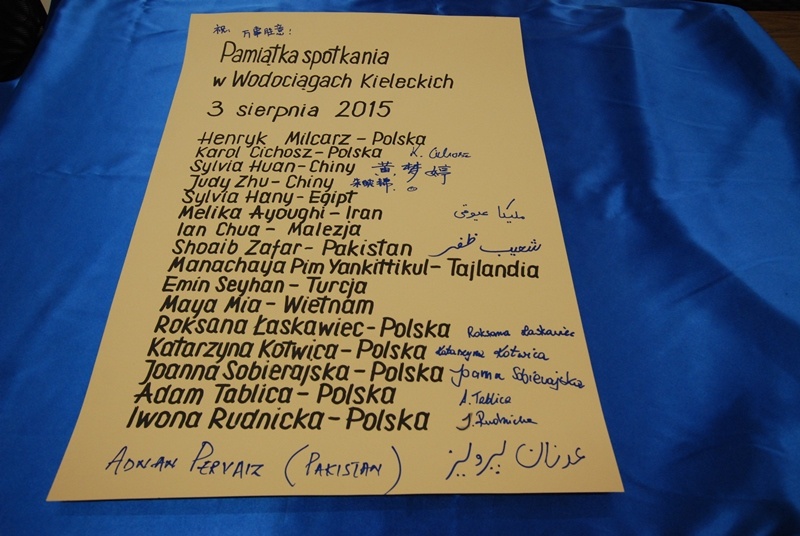 祝: 万事胜意!
Pamiątka spotkania
w Wodociągach Kieleckich
3 sierpnia 2015
Henryk Milcarz – Polska
Karol Cichosz – Polska K. Cichosz
Sylvia Huan – Chiny 黄梦婷
Judy Zhu – Chiny
Sylvia Hany – Egipt
Melika Ayoughi – Iran ملیکا عیوقی
Ian Chua – Malezja
Shoaib Zafar – Pakistan شعیب ظفر
Manachaya Pim Yankittikul – Tajlandia
Emin Seyhan – Turcja
Maya Mia – Wietnam
Roksana Łaskawiec – Polska Roksana Łaskawiec
Katarzyna Kotwica – Polska Katarzyna Kotwica
Joanna Sobierajska – Polska Joanna Sobierajska
Adam Tablica – Polska A. Tablica
Iwona Rudnicka – Polska I. Rudnicka
ADNAN PERVAIZ (PAKISTAN) عدنان پرویز